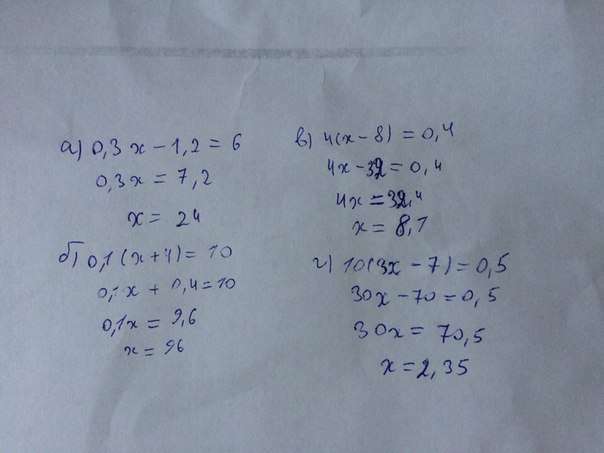 а) 0,3x − 1,2 = 6
0,3x = 7,2
x = 24
б) 0,1(x+4) = 10
0,1x + 0,4 = 10
0,1x = 9,6
x = 96
в) 4(x − 8) = 0,4
4x − 32 = 0,4
4x = 32,4
x = 8,1
г) 10(3x − 7) = 0,5
30x − 70 = 0,5
30x = 70,5
x = 2,35